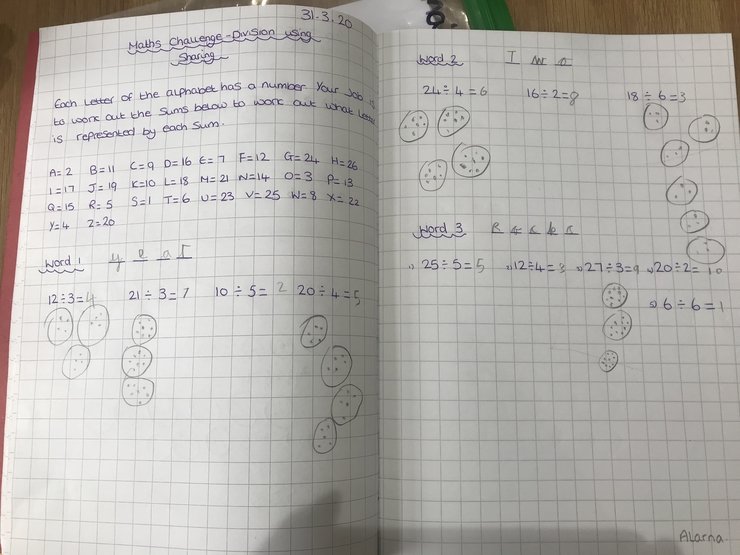 31.3.20
Maths Challenge - Division using
Sharing
Each Letter of the alphabet has a number. Your Job is
to work out the sums below to work out what Letter
is represented by each sum.
A=2 B=11 C=9 D=16 E=7 F=12 G=24 H=26
I=17 J=19 K=10 L=18 M=21 N=14 O=3 P=13
Q=15 R=5 S=1 T=6 U=23 V=25 W=8 X=22
Y=4 Z=20
Word 1 y e a
12÷3=4 21÷3=7 10÷5=2 20÷4=5
Word 2 T w o
24÷4=6 16÷2=8 18÷6=3
Word 3
1) 25÷5=5 2) 12÷4=3 3) 27÷3=9 4) 20÷2=10
5) 6÷6=1
Alarna